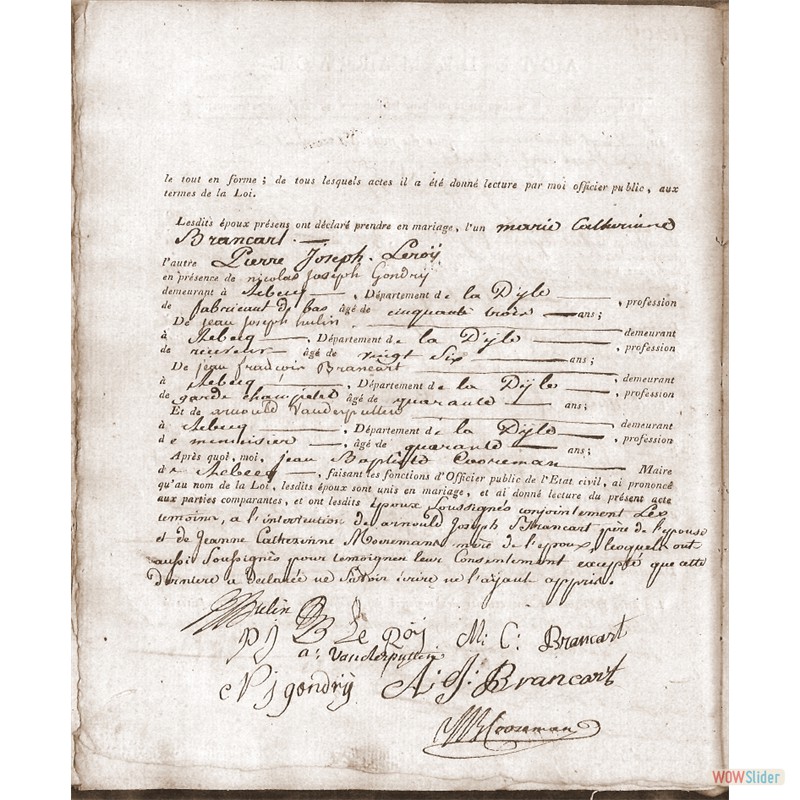 le tout en forme ; de tous lesquels actes il a été donné lecture par moi officier public, aux
termes de la Loi.
Lesdits époux présens ont déclaré prendre en mariage, l'un marie Catherinne
Brancart
l'autre Pierre Joseph Leroÿ
en présence de nicolas Joseph Gondrÿ
demeurant à Rebecq, Département de La Dÿle, profession
de fabricant de bas âgé de cinquante trois ans ;
De jean Joseph hulin demeurant
à Rebecq, Département de la Dÿle, profession
de receveur âgé de vingt Six ans ;
De jean francois Brancart
à Rebecq, Département de La Dÿle, demeurant
de garde champetre âgé de quarante ans ; profession
Et de arnould Vanderputten
à Rebecq, Département de La Dÿle, demeurant
de menuisier, âgé de quarante ans ; profession
Après quoi, moi, jean Baptiste Cooreman Maire
de Rebecq, faisant les fonctions d'Officier public de l'Etat civil, ai prononcé
qu'au nom de la Loi, lesdits époux sont unis en mariage, et ai donné lecture du présent acte
aux parties comparantes, et ont lesdits Epoux Soussignés conjointement Les
temoins, a l'intervention de arnould Joseph Brancart père de l'epouse
et de Jeanne Catherinne mere de l'epoux, lesquels ont
aussi Soussignés pour temoigner leur Consentement excepté que cette
derniere a declarée ne Savoir écrire ne l'aÿant appris.
hulin
P J Le Roÿ M: C: Brancart
a: Vanderputten
N j gondrÿ A: J: Brancart
J B Cooreman
WOWSlider